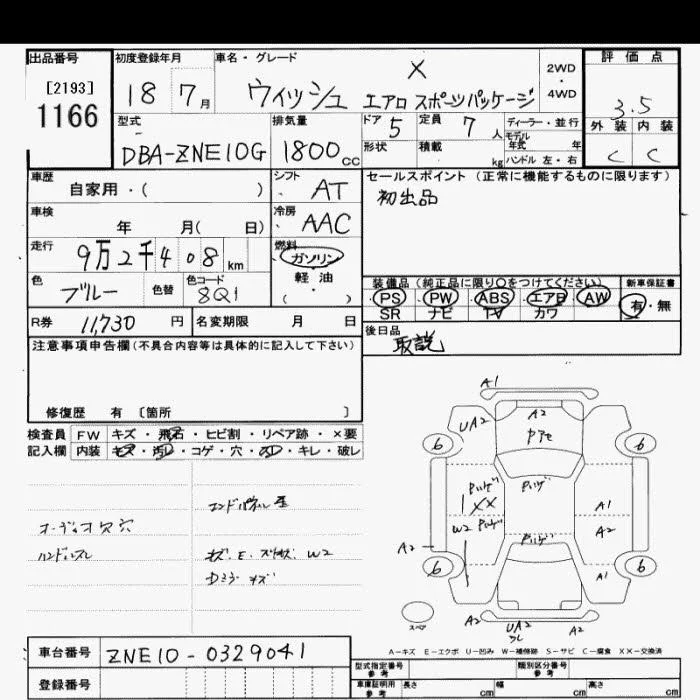 出品番号
[2193]
1166
初度登録年月
18 7月
車名・グレード
ウィッシュ X エアロ スポーツパッケージ
2WD・4WD
評価点
3.5
外装 内装
C C
型式
DBA-ZNE10G
排気量
1800cc
ドア 5
定員 7人
ディーラー・並行
モデル年式 年
形状
積載 kg
ハンドル 左・右
車歴
自家用・( )
シフト AT
車検
年 月( 日)
冷房 AAC
走行
9万2千408km
燃料
ガソリン
軽油
( )
色
ブルー
色替
色コード
8Q1
R券 11,730円
名変期限 月 日
セールスポイント (正常に機能するものに限ります)
初出品
装備品(純正品に限り○をつけてください)
新車保証書
PS PW ABS エアB AW
有・無
SR ナビ TV カワ
後日品
取説
注意事項申告欄(不具合内容等は具体的に記入して下さい)
修復歴 有 〔箇所 〕
検査員 FW キズ・飛石・ヒビ割・リペア跡・×要
記入欄 内装 キズ・汚レ・コゲ・穴・スレ・キレ・破レ
オーディオ欠穴
ハンドルスレ
W2
A1
UA2
A2
6
6
XX
W2
A1
A2
A2
6
A1
6
スペア
A2
UA2
A2
A-キズ E-エクボ U-凹み W-補修跡 S-サビ C-腐食 XX-交換済
車台番号
ZNE10-0329041
登録番号
型式指定番号 参考
類別区分番号 参考
車庫証明用 参考
長さ cm
幅 cm
高さ cm